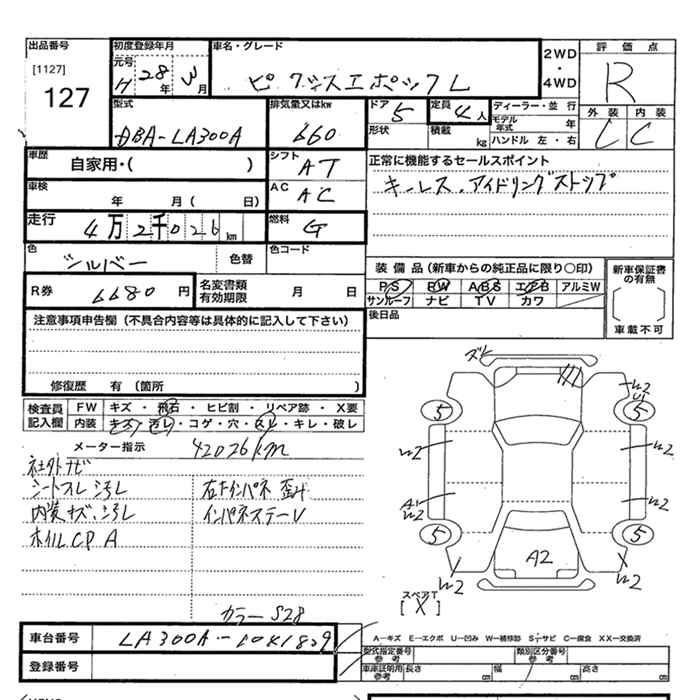 出品番号
[1127]
127
初度登録年月
元号
H 28 年 3 月
車名・グレード
ピクシスエポックL
2WD
・
4WD
評価点
R
外装 内装
C C
型式
DBA-LA300A
排気量又はkw
660
ドア
5
定員
4人
形状
積載
kg
ディーラー・並行
モデル年式 年
ハンドル 左・右
車歴
自家用・( )
シフト
AT
車検
年 月( 日)
AC
AC
走行
4万2千026km
燃料
G
正常に機能するセールスポイント
キーレス・アイドリングストップ
色
シルバー
色替
色コード
R券
6680円
名変書類
有効期限
月 日
装備品(新車からの純正品に限り○印)
PS PW ABS エアB アルミW
サンルーフ ナビ TV カワ
新車保証書
の有無
[ ]
車載不可
後日品
注意事項申告欄(不具合内容等は具体的に記入して下さい)
修復歴 有(箇所 )
検査員
記入欄
FW キズ・飛石・ヒビ割・リペア跡・X要
内装 キズ・汚レ・コゲ・穴・スレ・キレ・破レ
メーター指示
42026km
社外ナビ
シートスレ汚レ
内装キズ、汚レ
ホイルCPA
右Fインパネ歪ミ
インパネステーV
カラーS28
ズレ
W2
U1
5
5
W2
W2
A1
W2
W2
5
5
W2
A2
W2
スペアT
[X]
車台番号
LA300A-
登録番号
A…キズ E…エクボ U…凹み W…補修跡 S…サビ C…腐食 XX…交換済
型式指定番号
参考
類別区分番号
参考
車庫証明用
参考
長さ cm 幅 cm 高さ cm